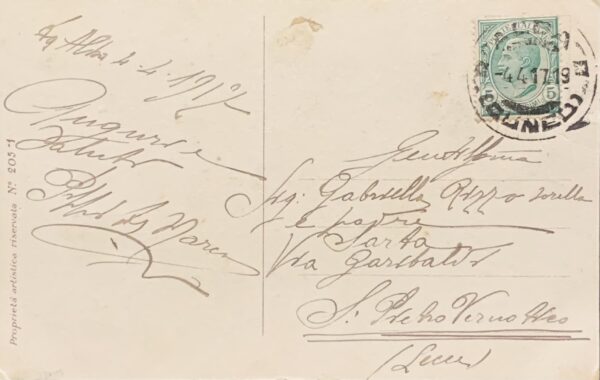 Alba 4-4-1917
Auguri e
saluti
Marco
Proprietà artistica riservata Nº 205-1
ALBA
-4.4.17.19
(CUNEO)
5
Gentilissma
Sig. Gabriella Rizzo sorella
e padre
Sarta
Via Garibaldi
S. Pietro Vernotico
(Lecce)